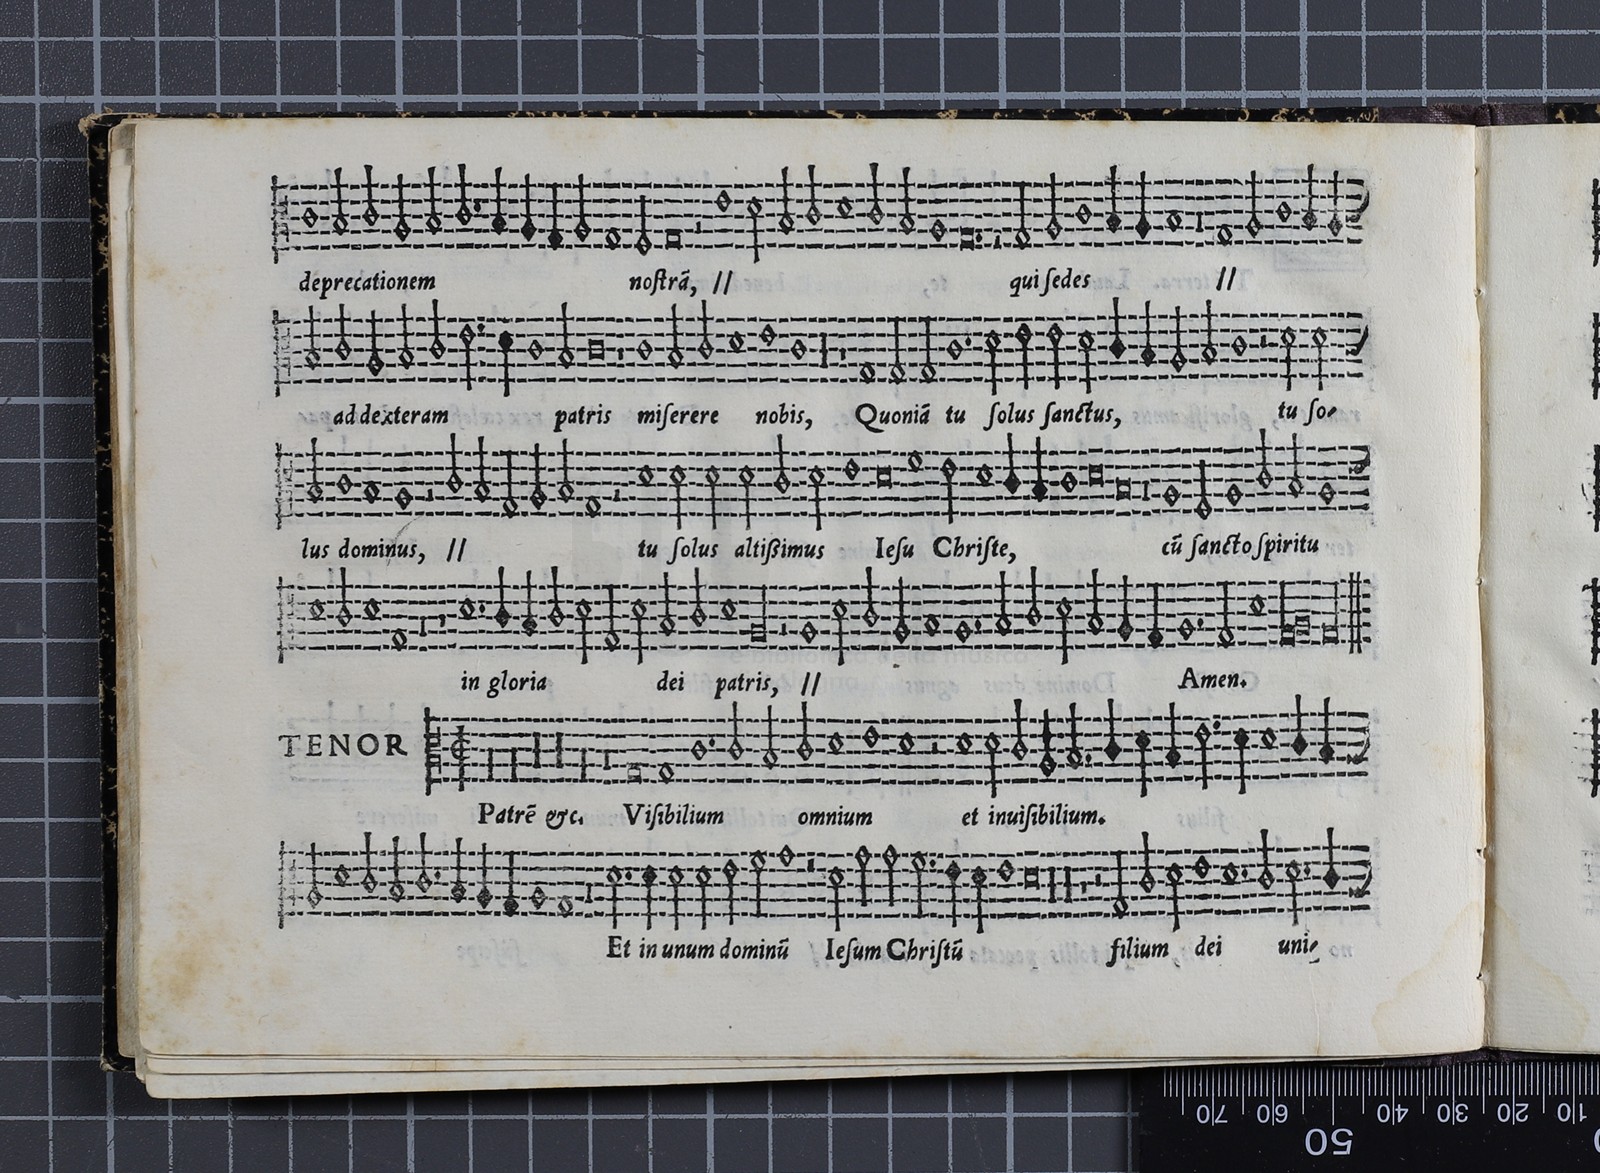 deprecationem noſtrā, // qui ſedes //
ad dexteram patris miſerere nobis, Quoniā tu ſolus ſanctus, tu ſo-
lus dominus, // tu ſolus altiſsimus Ieſu Chriſte, cū ſancto ſpiritu
in gloria dei patris, // Amen.
TENOR
Patrē &c. Viſibilium omnium et inuiſibilium.
Et in unum dominū Ieſum Chriſtū filium dei uni-
70 60 40 30 20 10
50